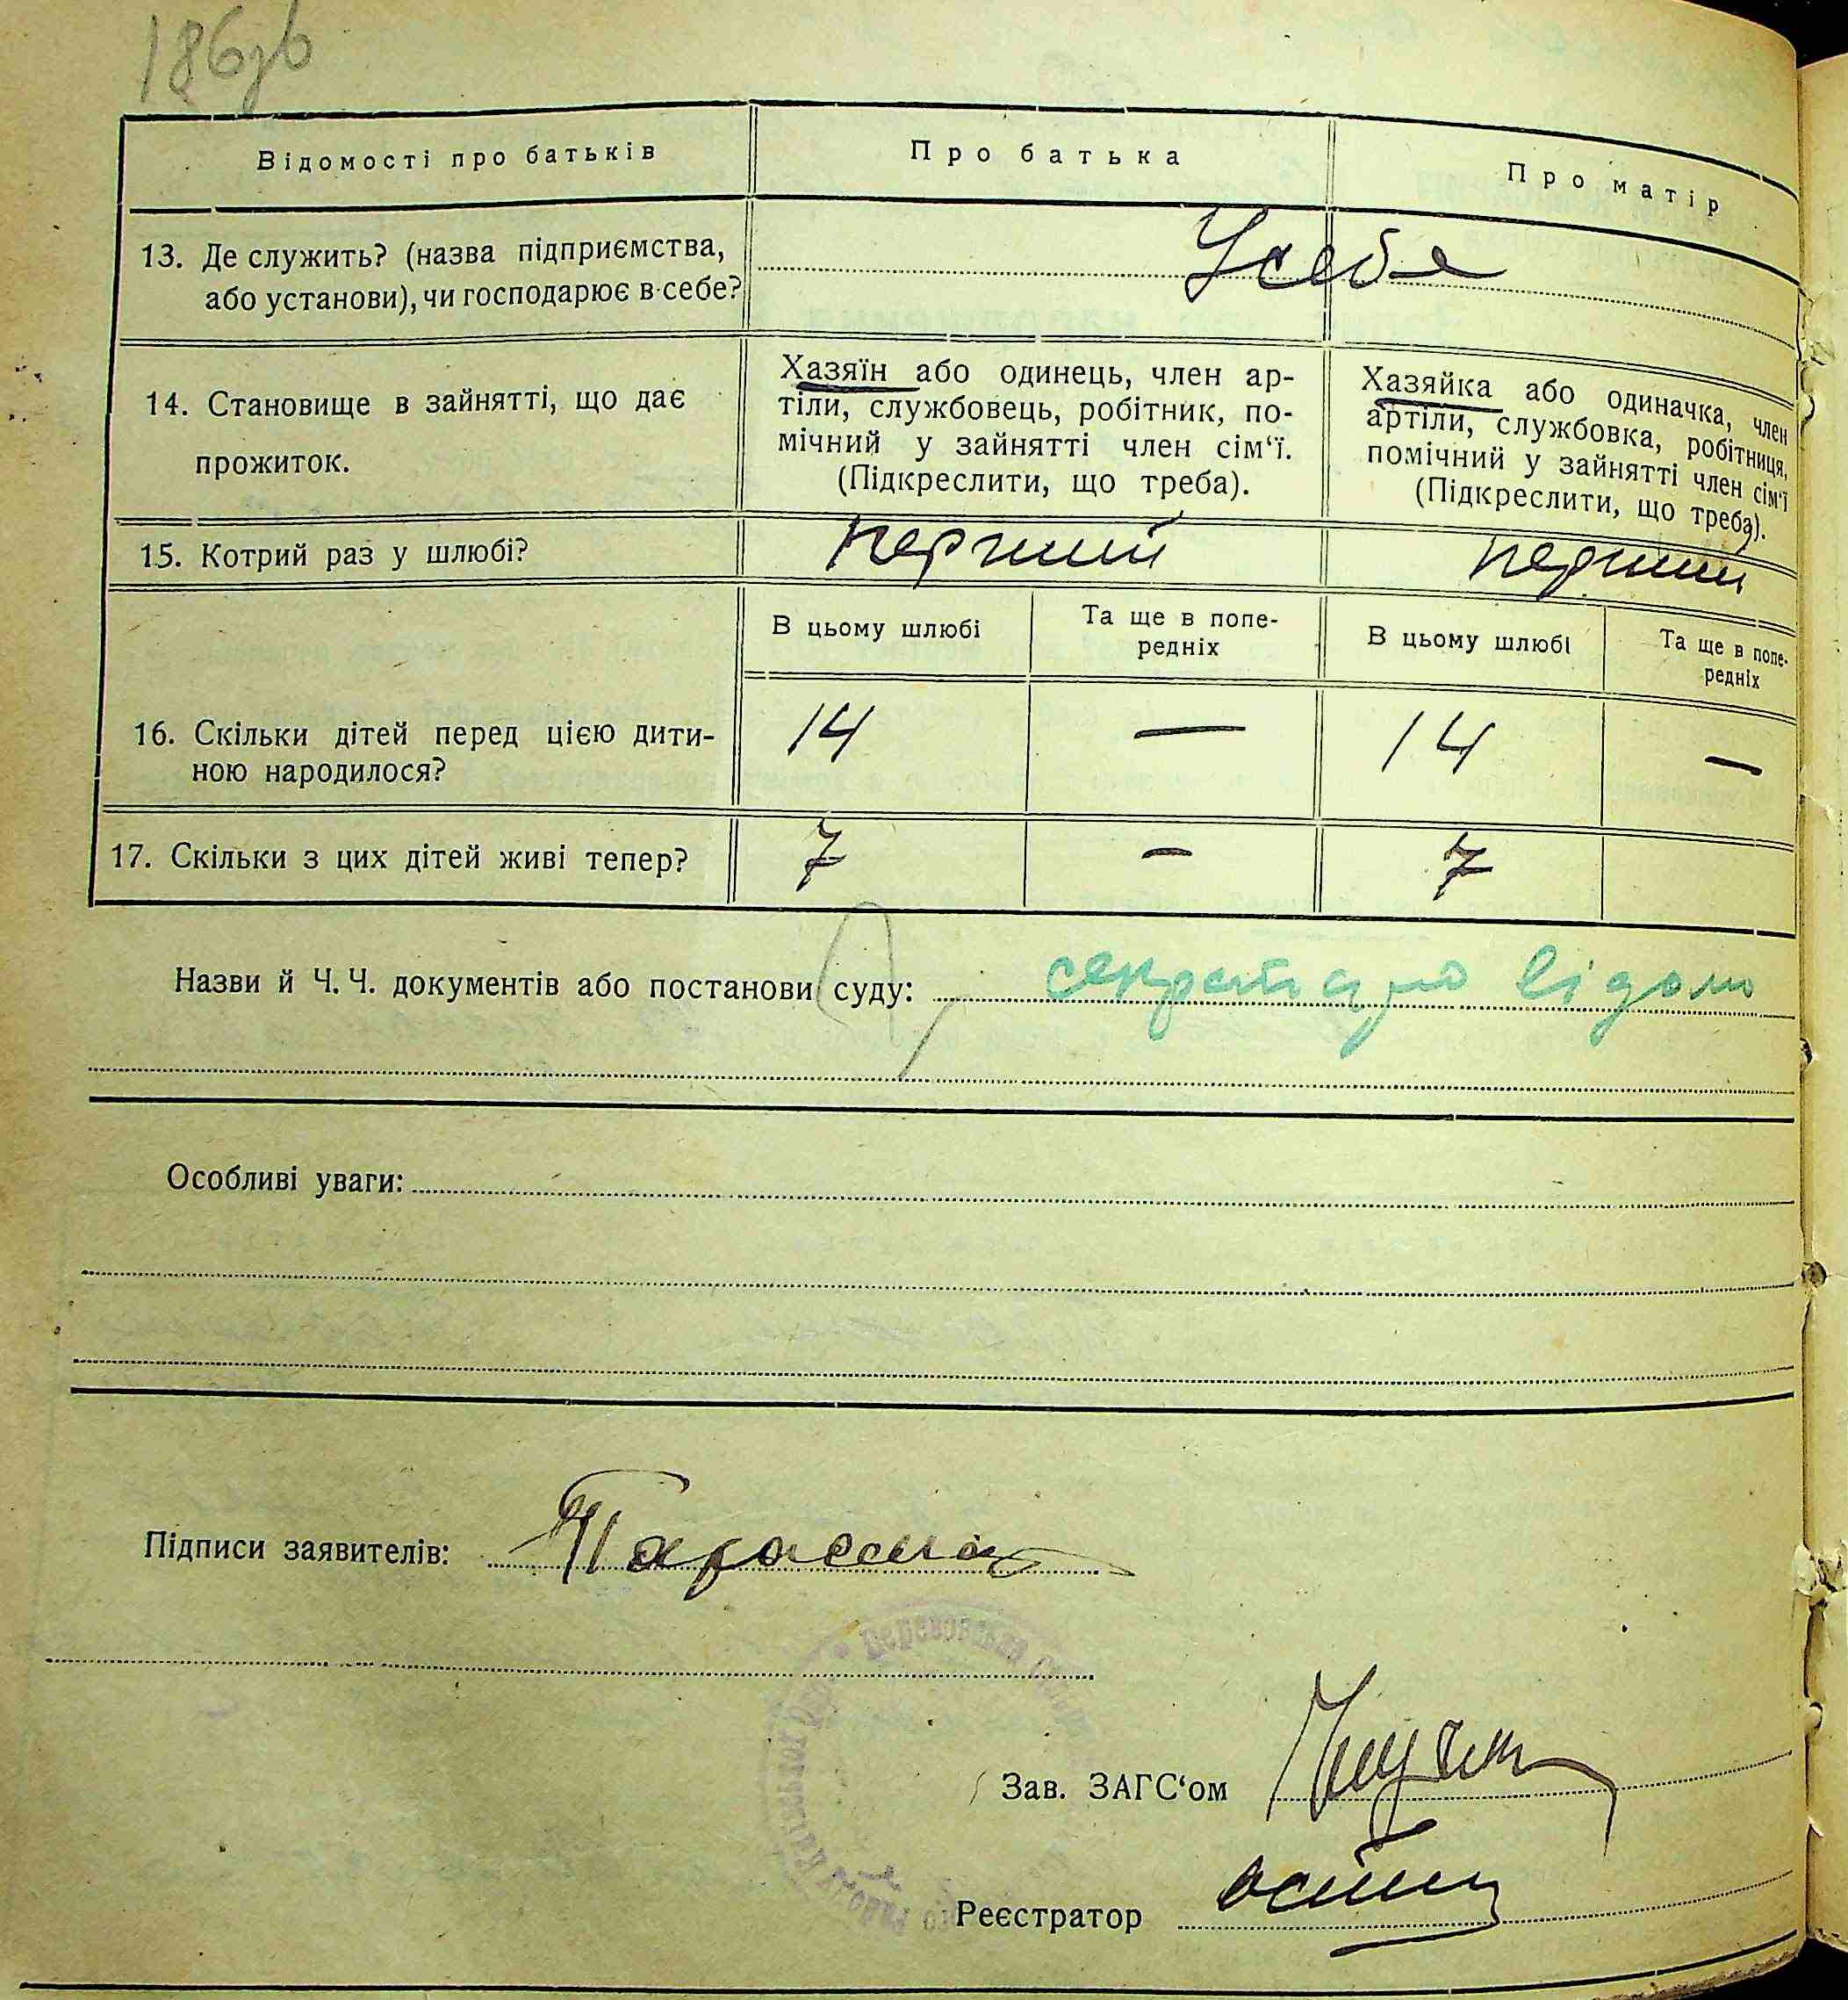 186зв
Відомості про батьків
Про батька
Про матір
13. Де служить? (назва підприємства,
або установи), чи господарює в себе?
У себе
14. Становище в зайнятті, що дає
прожиток.
Хазяїн або одинець, член ар-
тіли, службовець, робітник, по-
мічний у зайнятті член сім‘ї.
(Підкреслити, що треба).
Хазяйка або одиначка, член
артіли, службовка, робітниця,
помічний у зайнятті член сім‘ї
(Підкреслити, що треба).
15. Котрий раз у шлюбі?
перший
перший
В цьому шлюбі
Та ще в попе-
редніх
В цьому шлюбі
Та ще в попе-
редніх
16. Скільки дітей перед цією дити-
ною народилося?
14 — 14 —
17. Скільки з цих дітей живі тепер?
7 — 7
Назви й Ч. Ч. документів або постанови суду: секретарю відомо
Особливі уваги:
Підписи заявителів:
Зав. ЗАГС‘ом
Реєстратор